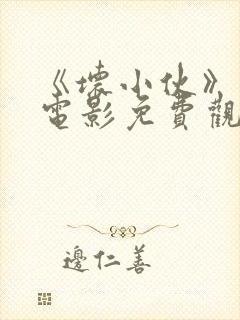 《壞小伙》
電影免費觀
邊仁善